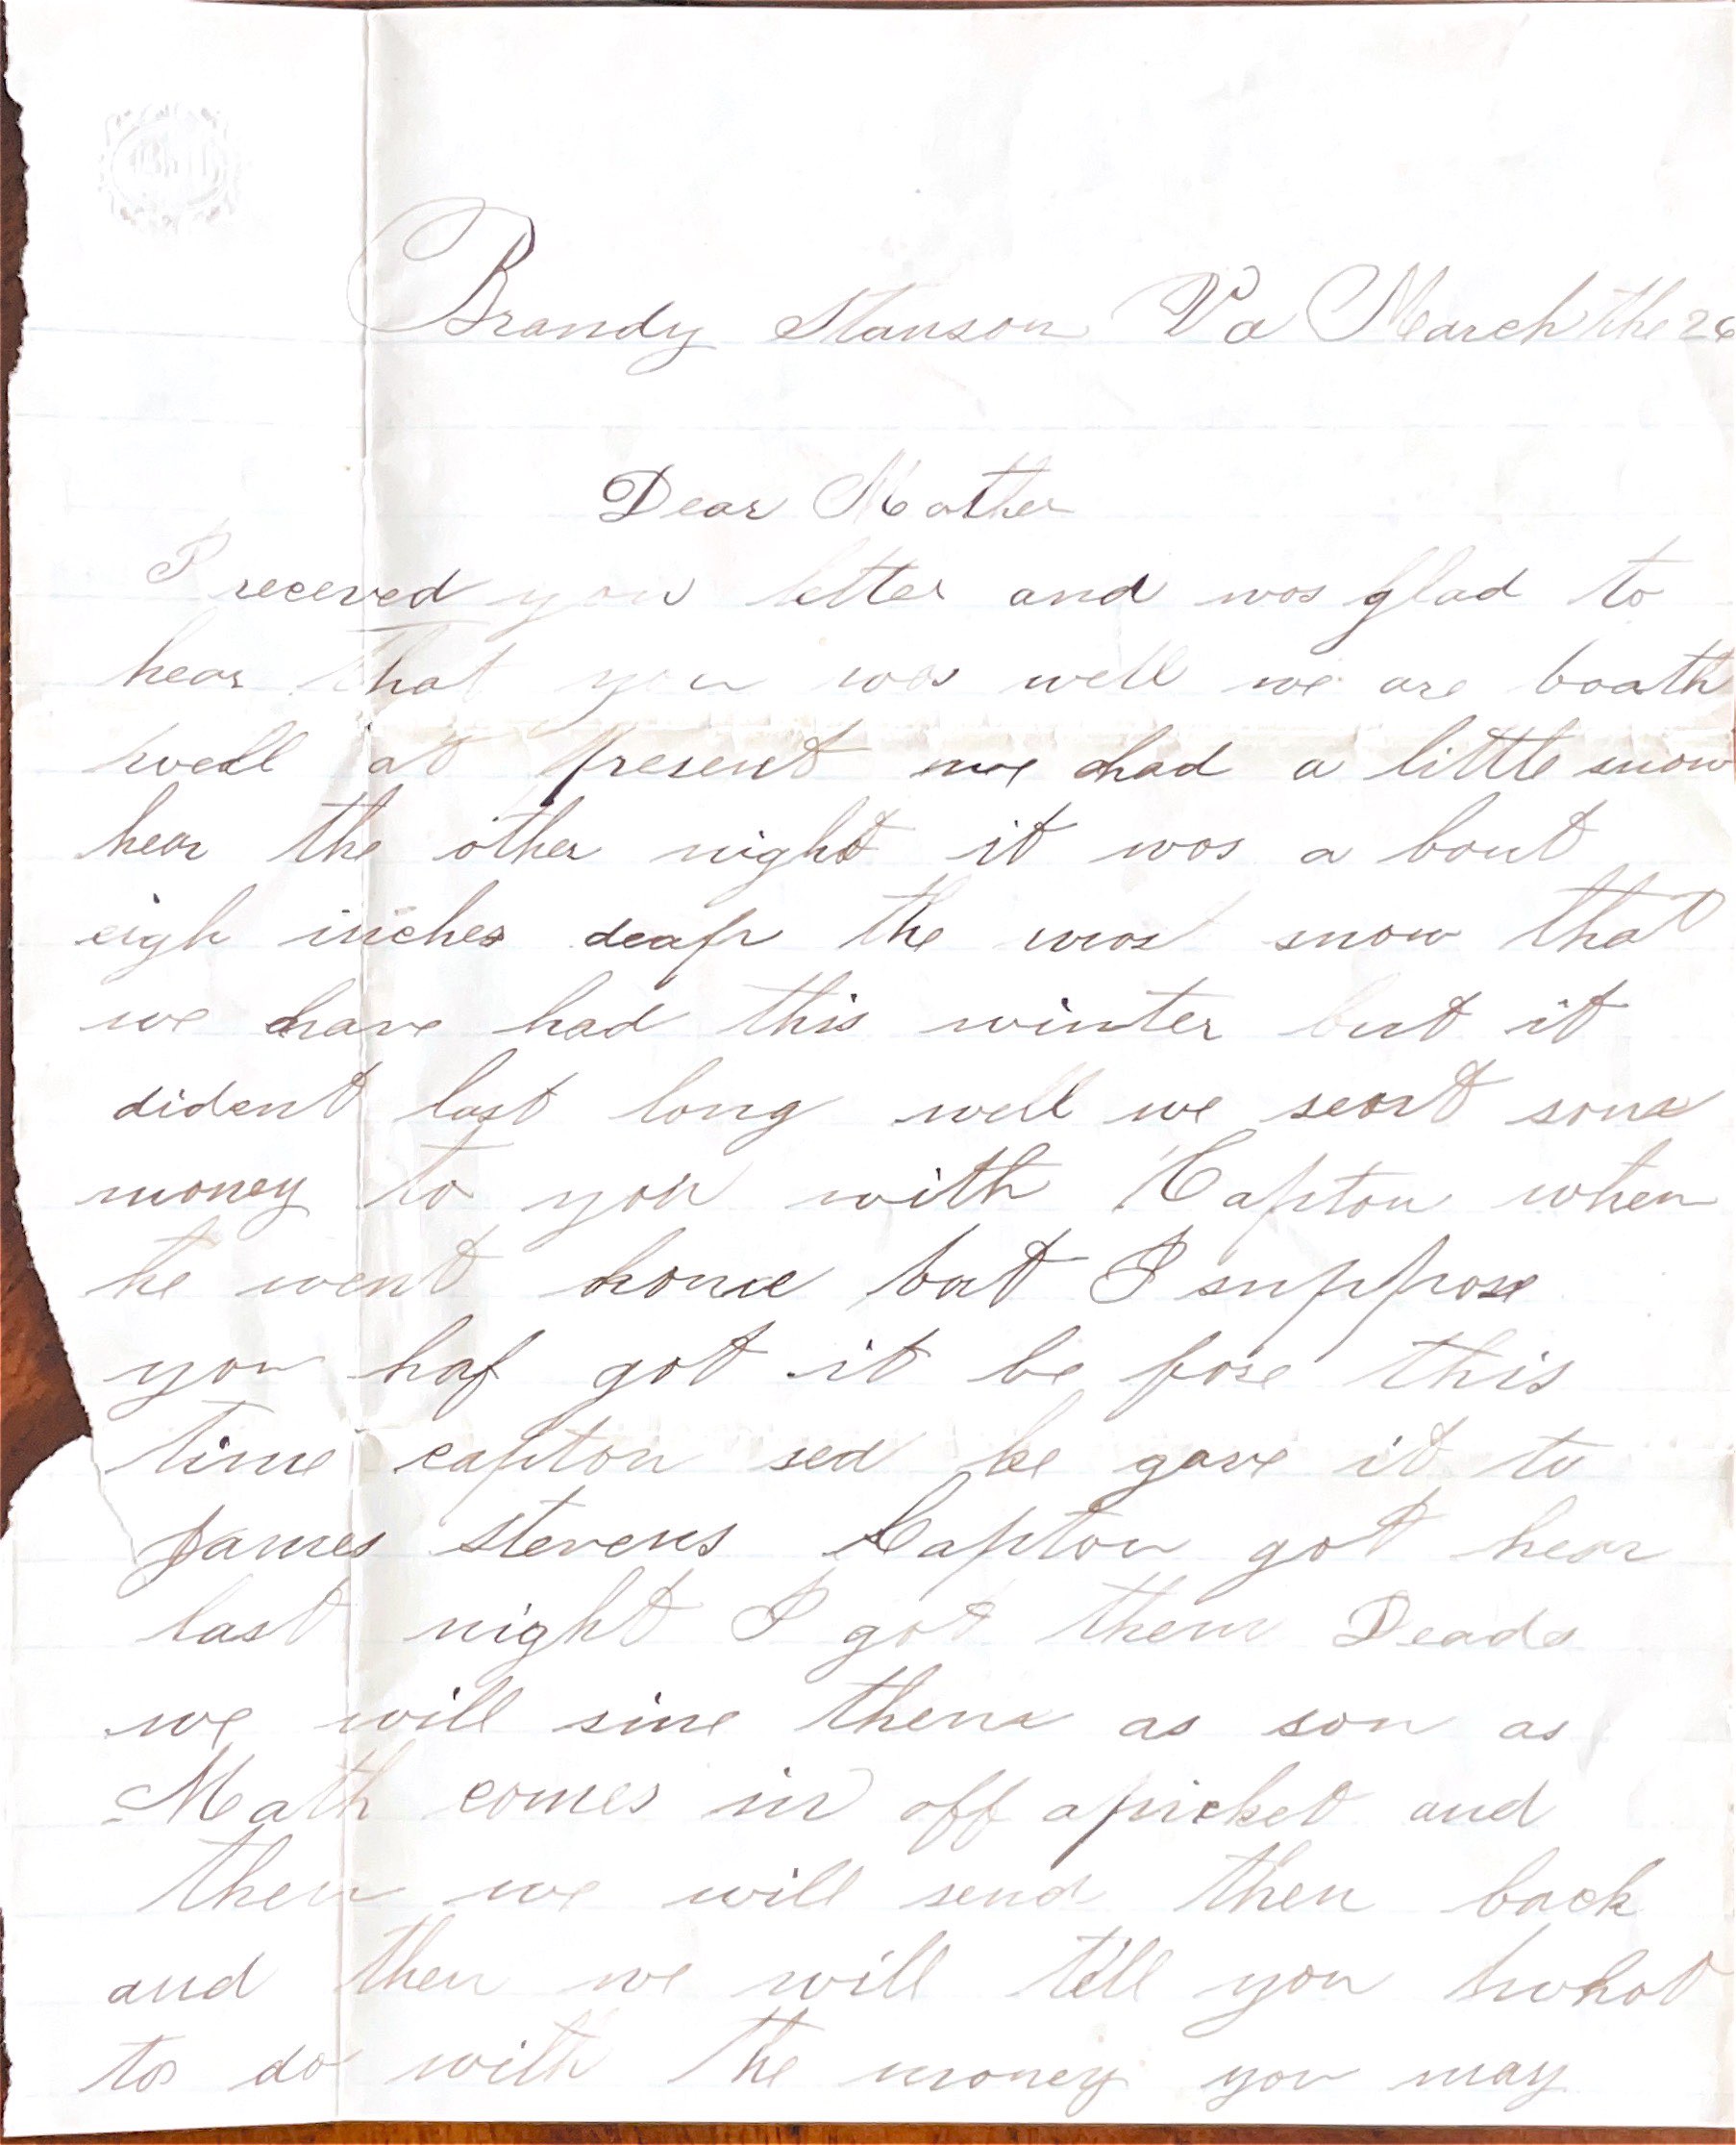 Brandy Stanson Va March the 26
Dear Mother
I receved you letter and was glad to
hear that you was well we are boath
well at present we had a little snow
hear the other night it was a bout
eigh inches deap the mos snow that
we have had this winter but it
dident last long well we sent some
money to you with Capton when
he went home but I suppose
you haf got it be fore this
time capton sed he gave it to
James Stevens Capton got hear
last night I got them Deads
we will sine them as son as
Math comes in off apicket and
then we will send then back
and then we will tell you what
to do with the money you may